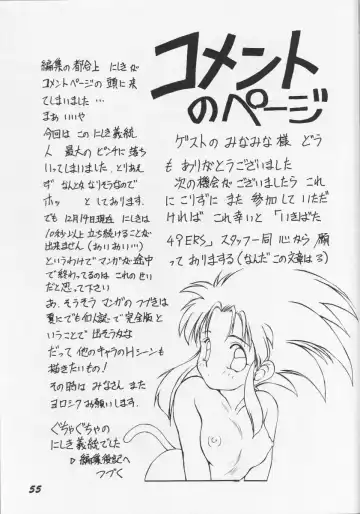 コメント
のページ
編集の都合上 にしきが
コメントページの頭に来
てしまいました…
まぁいいや
今回は この にしき義統
人 最大の ピンチに 落ち
いってしまいました。とりあえ
ず なんとかなりそうなので
ホッ としております。
でも 12月19日現在 にしきは
10秒以上 立ち続けることが
出来ません(あいあい…)
というわけで マンガが途中
で終わってるのは これのせい
だと思って下さい
あ、そうそう マンガの つづきは
夏にでも 個人誌で完全版と
いうことで 出そうかな
だって 他のキャラのHシーンも
描きたいもの!
その時は みなさん また
ヨロシク お願いします.
ぐちゃぐちゃの
にしき義統でした
編集後記へ
つづく
ゲストの みなみな様 どう
も ありがとうございました
次の機会が ございましたら これ
に こりずに また 参加して いただ
ければ これ幸いと 「いきばた
49ERS」スタッフ一同 心から 願
って おりまする(なんだ この文章は 3)
55